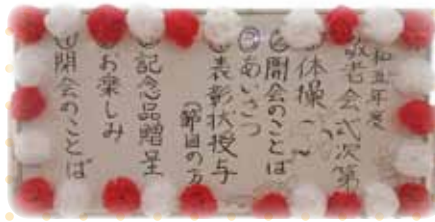 和五年度
敬老会式次第
体操
②開会のことば
③あいさつ
表彰状授与
(節目の方
記念品贈呈
お楽しみ
閉会のことば